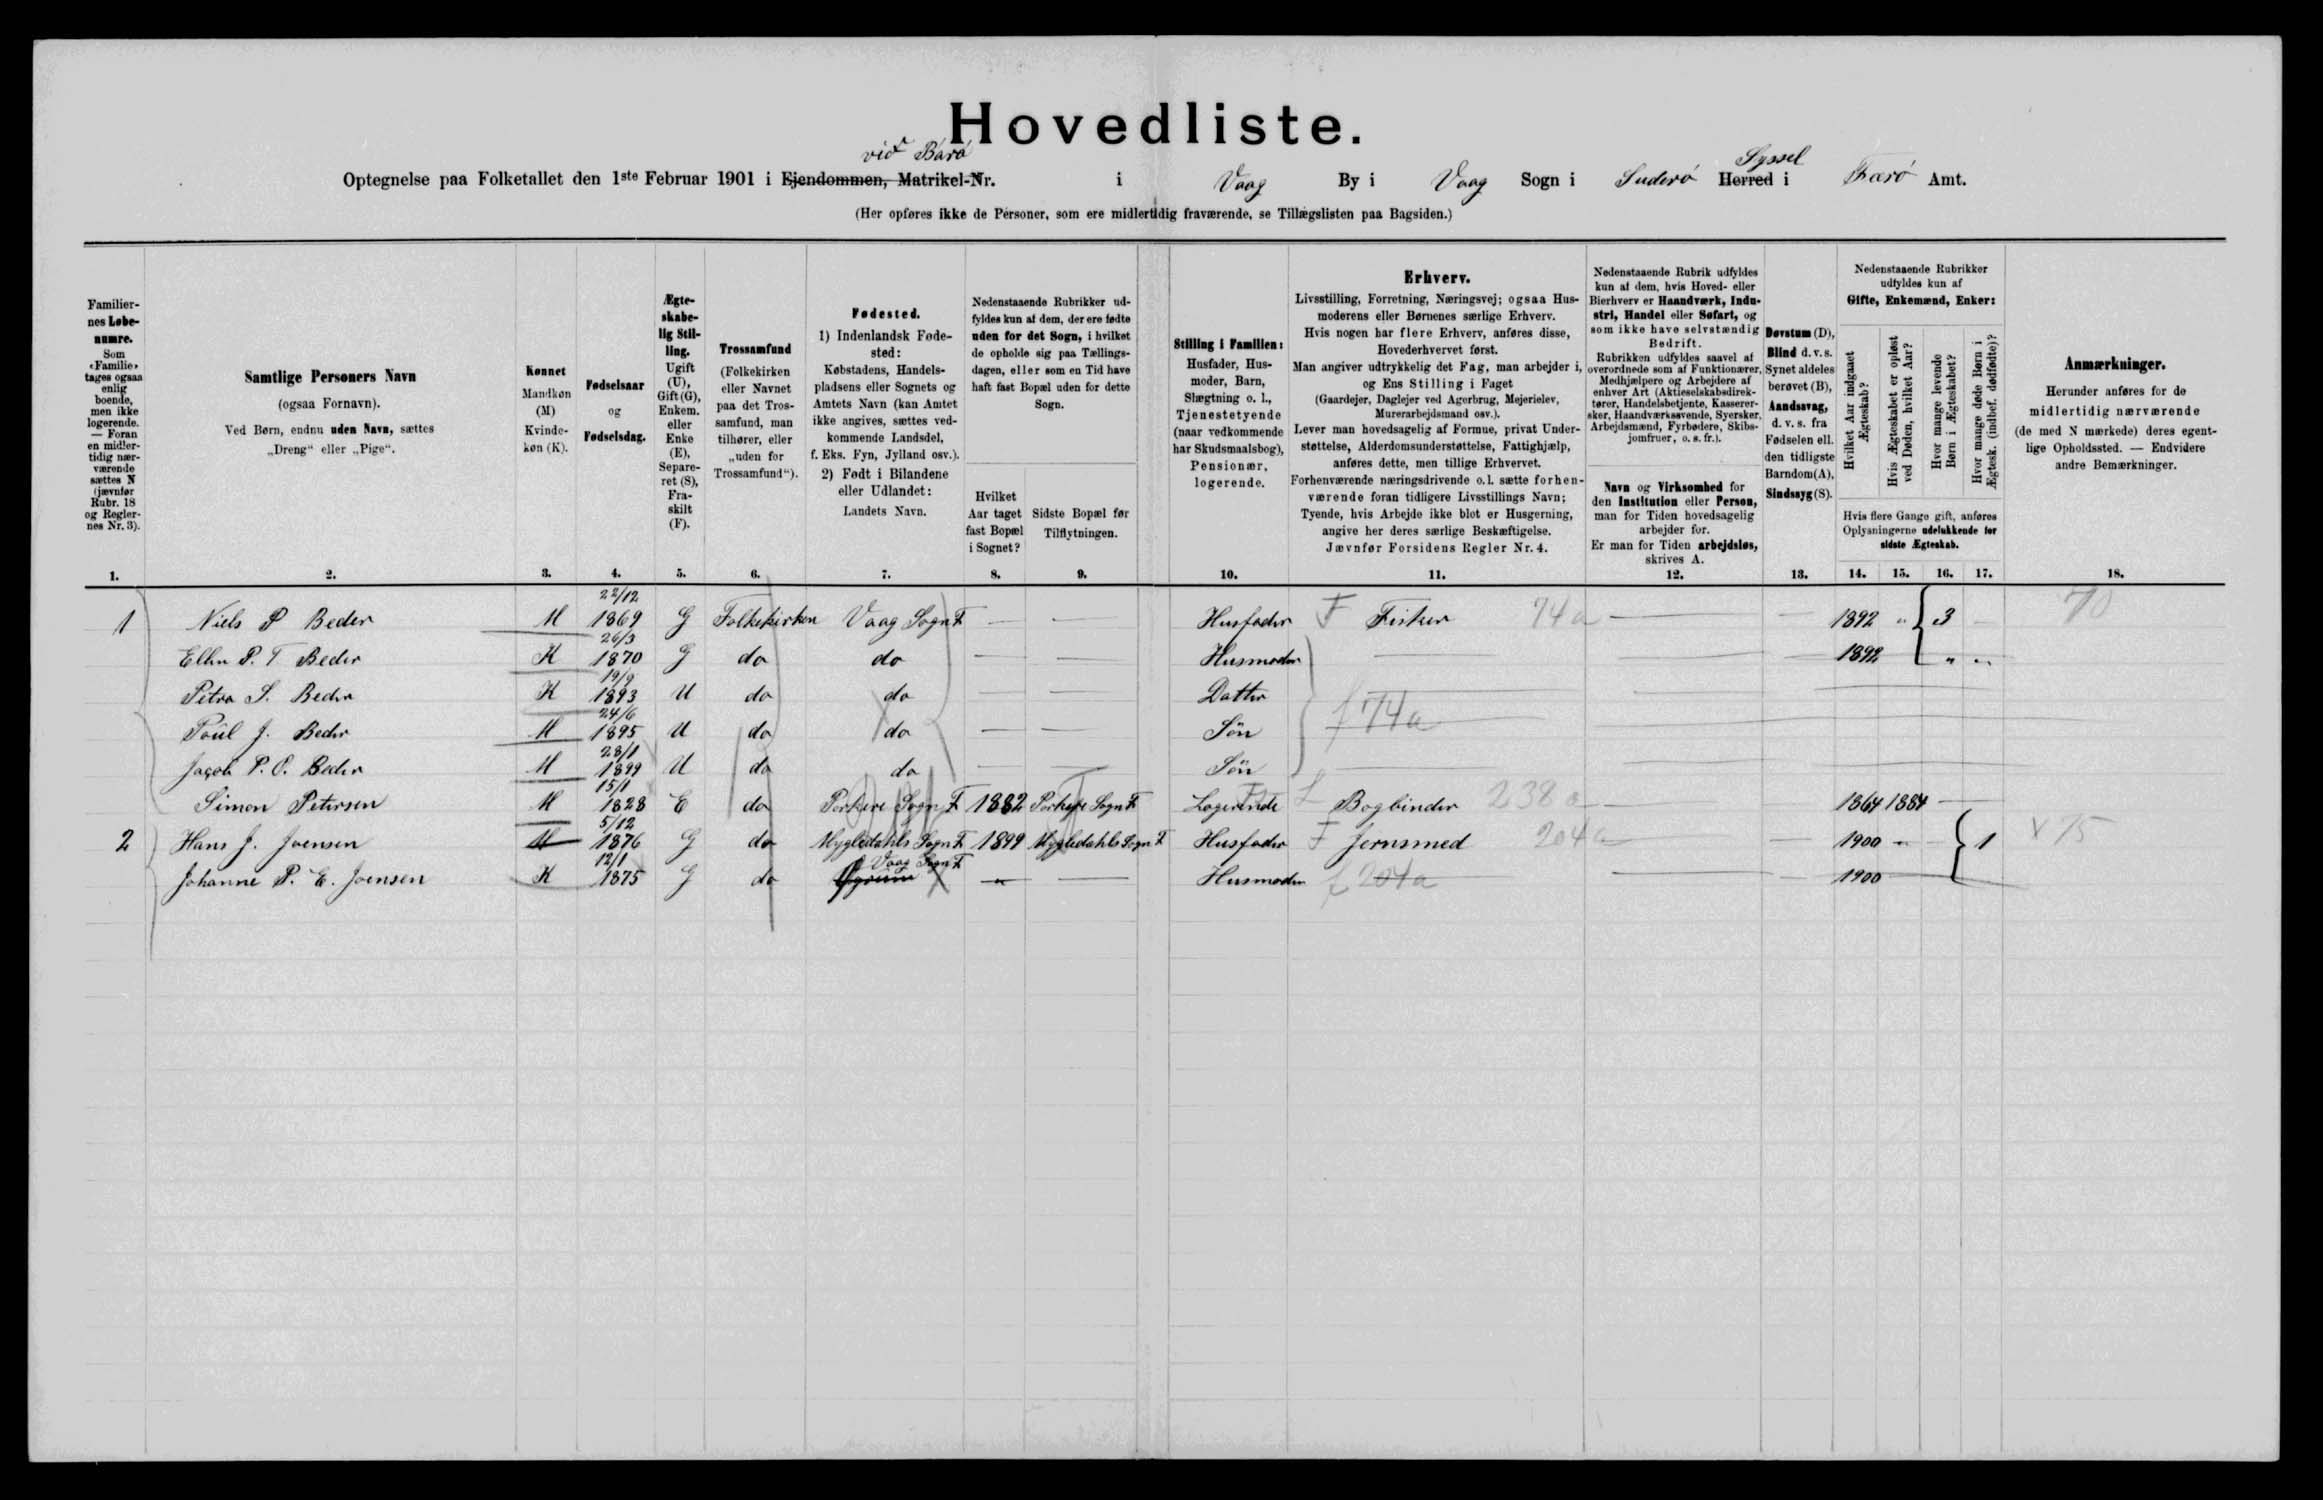 Hovedliste.
vid Bárá
Syssel
Optegnelse paa Folketallet den 1ste Februar 1901 i Ejendommen, Matrikel-Nr. i Vaag By i Vaag Sogn i Suderö Herred i Færö Amt.
(Her opføres ikke de Personer, som ere midlertidig fraværende, se Tillægslisten paa Bagsiden.)
Familiernes Løbenumre.
Som «Familie» tages ogsaa enlig boende, men ikke logerende. — Foran en midlertidig nærværende sættes N (jævnfør Rubr. 18 og Reglernes Nr. 3).
Samtlige Personers Navn
(ogsaa Fornavn).
Ved Børn, endnu uden Navn, sættes
„Dreng“ eller „Pige“.
Kønnet
Mandkøn (M) Kvindekøn (K).
Fødselsaar
og
Fødselsdag.
Ægteskabelig Stilling.
Ugift (U), Gift (G), Enkem. eller Enke (E), Separeret (S), Fraskilt (F).
Trossamfund
(Folkekirken eller Navnet paa det Trossamfund, man tilhører, eller „uden for Trossamfund“).
Fødested.
1) Indenlandsk Fødested:
Købstadens, Handelspladsens eller Sognets og Amtets Navn (kan Amtet ikke angives, sættes vedkommende Landsdel, f. Eks. Fyn, Jylland osv.).
2) Født i Bilandene eller Udlandet:
Landets Navn.
Nedenstaaende Rubrikker udfyldes kun af dem, der ere fødte uden for det Sogn, i hvilket de opholde sig paa Tællingsdagen, eller som en Tid have haft fast Bopæl uden for dette Sogn.
Hvilket Aar taget fast Bopæl i Sognet?
Sidste Bopæl før Tilflytningen.
Stilling i Familien:
Husfader, Husmoder, Barn, Slægtning o. l., Tjenestetyende (naar vedkommende har Skudsmaalsbog), Pensionær, logerende.
Erhverv.
Livsstilling, Forretning, Næringsvej; ogsaa Husmoderens eller Børnenes særlige Erhverv.
Hvis nogen har flere Erhverv, anføres disse, Hovederhvervet først.
Man angiver udtrykkelig det Fag, man arbejder i, og Ens Stilling i Faget
(Gaardejer, Daglejer ved Agerbrug, Mejerielev, Murerarbejdsmand osv.).
Lever man hovedsagelig af Formue, privat Understøttelse, Alderdomsunderstøttelse, Fattighjælp, anføres dette, men tillige Erhvervet.
Forhenværende næringsdrivende o. l. sætte forhenværende foran tidligere Livsstillings Navn;
Tyende, hvis Arbejde ikke blot er Husgerning, angive her deres særlige Beskæftigelse.
Jævnfør Forsidens Regler Nr. 4.
Nedenstaaende Rubrik udfyldes kun af dem, hvis Hoved- eller Bierhverv er Haandværk, Industri, Handel eller Søfart, og som ikke have selvstændig Bedrift.
Rubrikken udfyldes saavel af overordnede som af Funktionærer, Medhjælpere og Arbejdere af enhver Art (Aktieselskabsdirektører, Handelsbetjente, Kasserersker, Haandværkssvende, Syersker, Arbejdsmænd, Fyrbødere, Skibsjomfruer, o. s. fr.).
Navn og Virksomhed for den Institution eller Person, man for Tiden hovedsagelig arbejder for.
Er man for Tiden arbejdsløs, skrives A.
Døvstum (D), Blind d. v. s. Synet aldeles berøvet (B), Aandssvag, d. v. s. fra Fødselen ell. den tidligste Barndom (A), Sindssyg (S).
Nedenstaaende Rubrikker udfyldes kun af
Gifte, Enkemænd, Enker:
Hvilket Aar indgaaet Ægteskab?
Hvis Ægteskabet er opløst ved Døden, hvilket Aar?
Hvor mange levende Børn i Ægteskabet?
Hvor mange døde Børn i Ægtesk. (indbef. dødfødte)?
Hvis flere Gange gift, anføres Oplysningerne udelukkende for sidste Ægteskab.
Anmærkninger.
Herunder anføres for de midlertidig nærværende (de med N mærkede) deres egentlige Opholdssted. — Endvidere andre Bemærkninger.
1. 2. 3. 4. 5. 6. 7. 8. 9. 10. 11. 12. 13. 14. 15. 16. 17. 18.
1 Niels P Beder M 22/12 1869 G Folkekirken Vaag Sogn F — — Husfader F Fisker 74a — — 1892 " 3 — 70
Ellen P. T Beder K 26/3 1870 G do do — — Husmoder — — 1892 " "
Petra S. Beder K 19/9 1893 U do do — — Datter
Poul J. Beder M 24/6 1895 U do do — — Sön f 74a
Jacob P. O. Beder M 28/1 1899 U do do — — Sön
Simon Petersen M 15/1 1828 E do Porkere Sogn F 1882 Porkere Sogn F Logerende L Bogbinder 238a — 1864 1884 —
2 Hans J. Joensen M 5/12 1876 G do Mygledahls Sogn F 1899 Mygledahls Sogn F Husfader F Jernsmed 204a — — 1900 " 1 x 75
Johanne P. E. Joensen K 12/1 1875 G do Vaag Sogn F " — Husmoder f 204a — — 1900